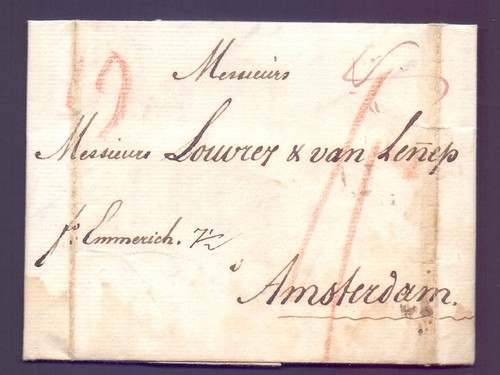 Messieurs
Messieurs Louvrer & van Leñep
fo Emmerich. 7 1/2
à Amsterdam.